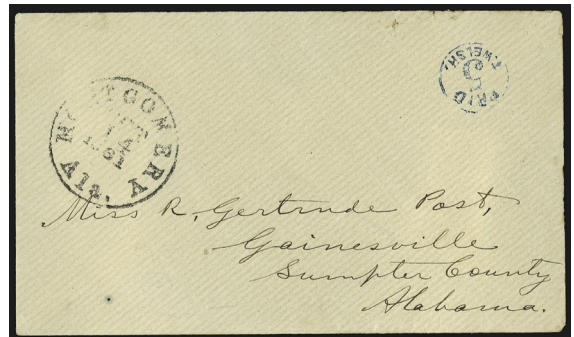 MONTGOMERY
Ala.
OCT
14
1861
PAID
5
T.WELSH.
Miss R. Gertrude Post,
Gainesville
Sumpter County
Alabama.